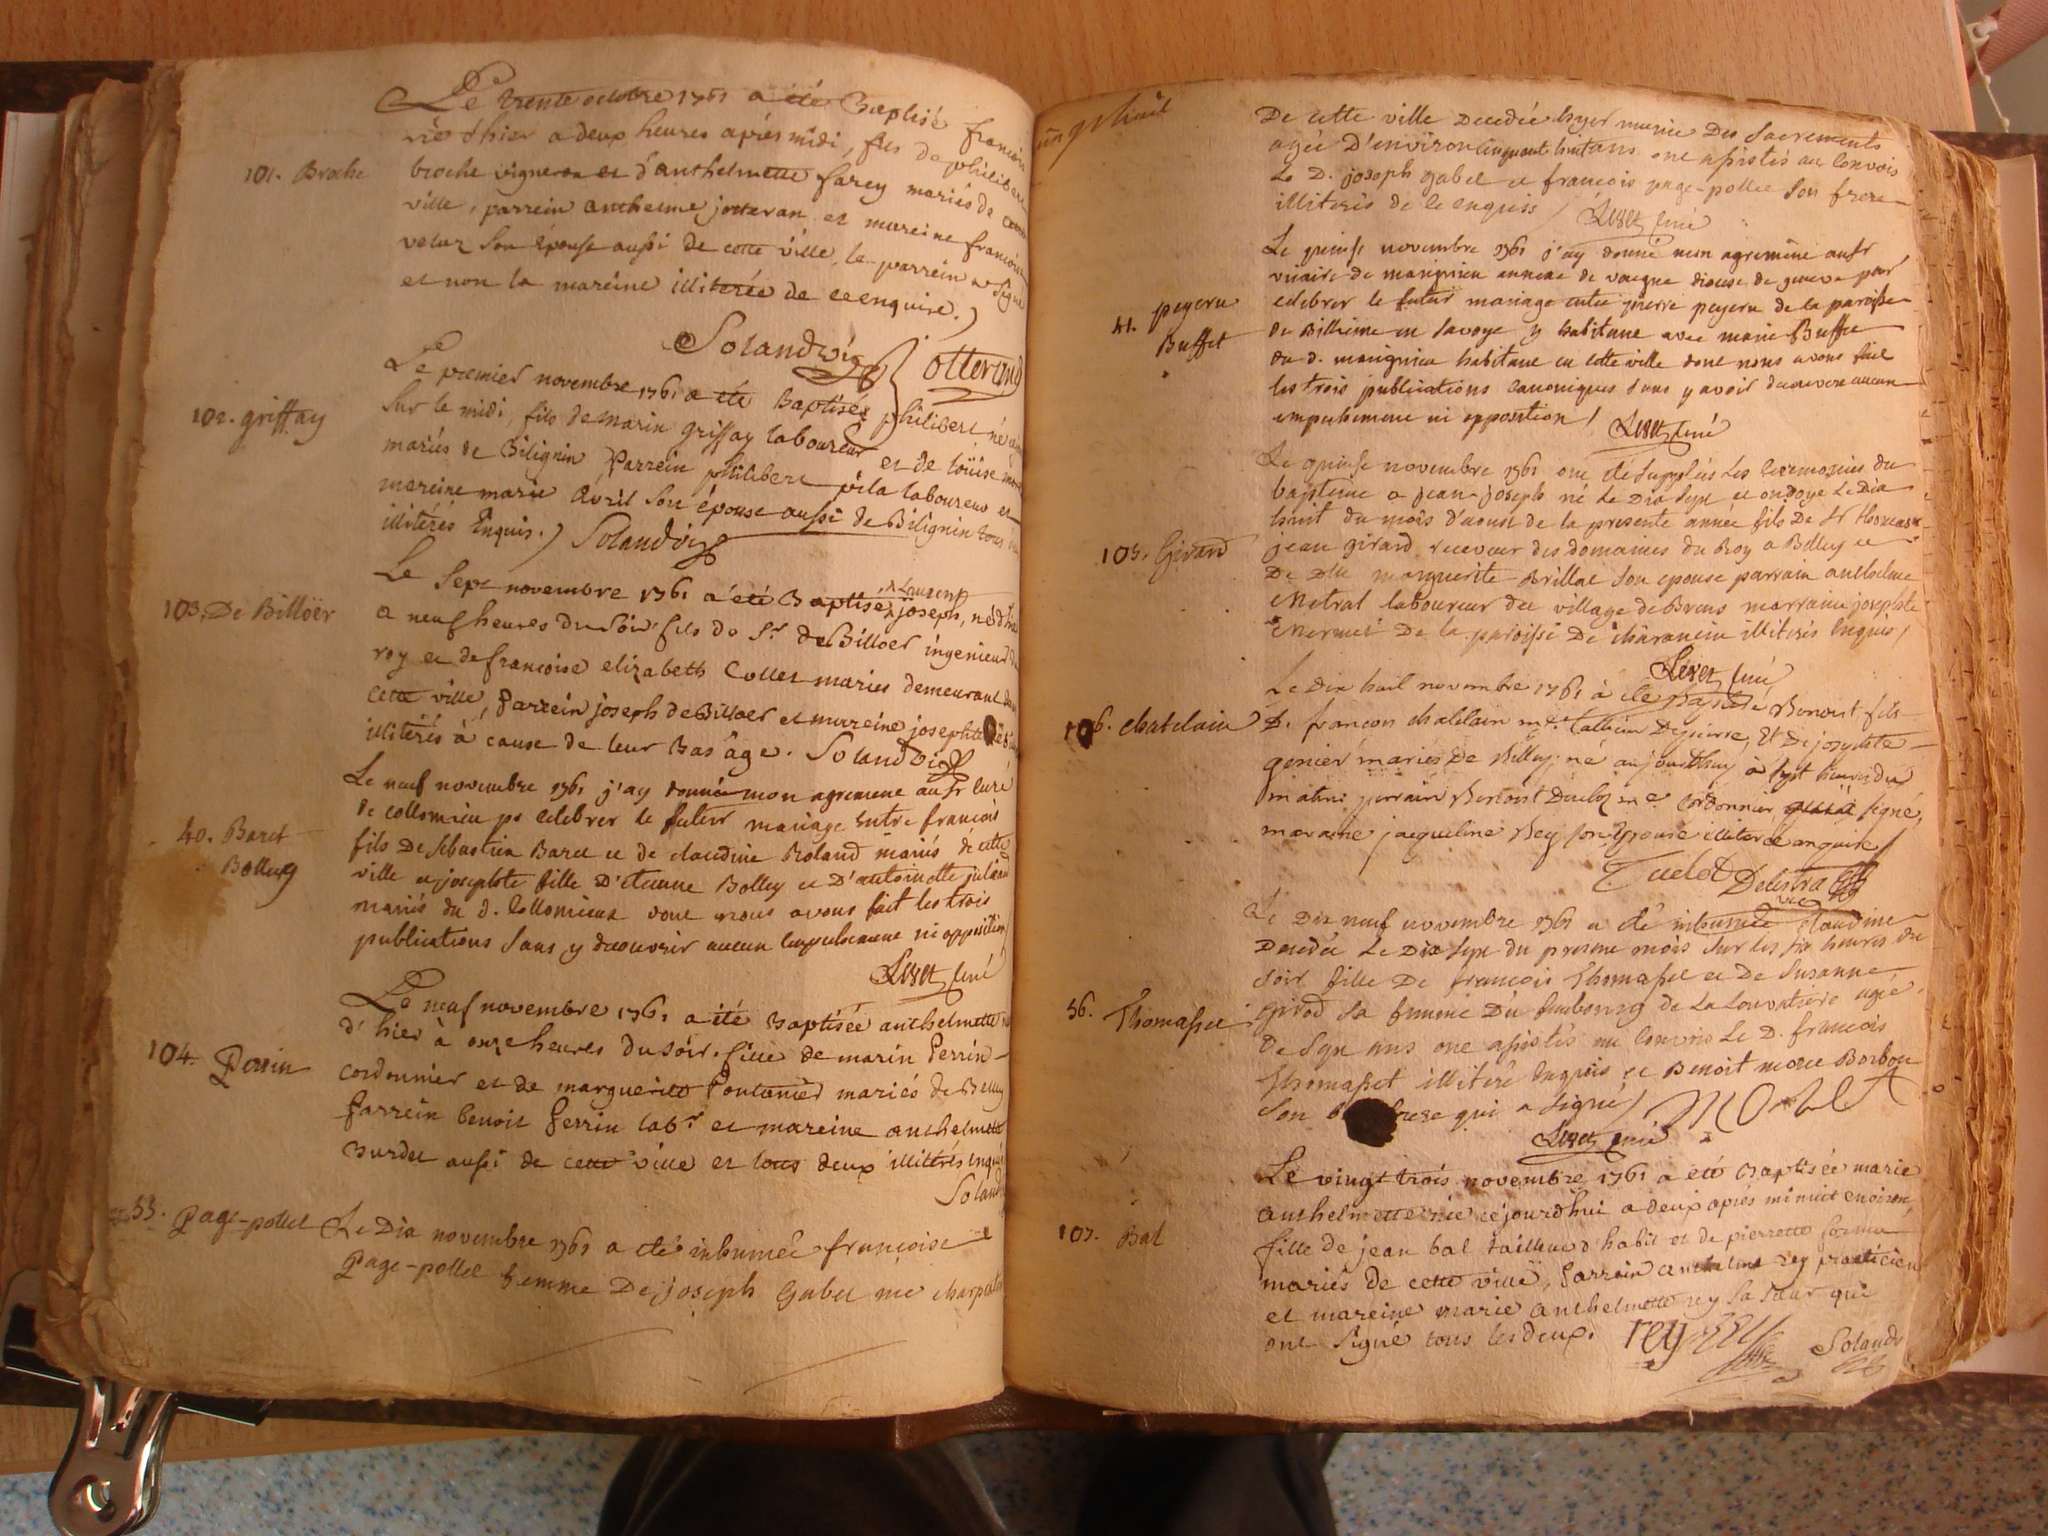 Le trente octobre 1761 a été Baptisé francois
né d'hier a deux heures après midi, fils de philibert
101. Broche
broche vigneron et d'anthelmette farcy mariés de cette
ville, parrein anthelme jotteran et mareine francoise
velut son épouse aussi de cette ville, le parrein a signé
et non la mareine illiterée de ce enquise.)
Solandvig jotterand
Le premier novembre 1761 a été Baptisé philibert né
102. griffay
sur le midi, fils de marin griffay laboureur et de loüise
mariés de Bilignin Parrein philibert pila laboureur et
mareine marie Avril son épouse aussi de Bilignin tous
illitérés Enquis.) Solandvig
Le sept novembre 1761 a été Baptisé Laurent joseph, né d'hier
103. De Billöer
a neuf heures du soir fils de Sr. de Billoer ingenieur du
roy et de francoise elizabeth Collet mariés demeurant dans
cette ville, Parrein joseph de Billoer et marreine josephte
illitérés à cause de leur Bas âge. Solandvig
Le neuf novembre 1761 j'ay donné mon agrement au Sr curé
de collomieu pr celebrer le futur mariage entre francois
40. Baret
Bolley
fils de sebastien Baret et de claudine Roland mariés de cette
ville et josephte fille D'etienne Bolley et D'antoinette juland
mariés du d. Collomieux dont nous avons fait les trois
publications sans y decouvrir aucun empechement ni opposition
Livet curé
Le neuf novembre 1761 a été Baptisée anthelmette née
104. Perrin
d'hier à onze heures du soir, fille de marin Perrin
cordonnier et de marguerite Pontanier mariés de Belley
Parrein benoit Perrin labr. et mareine anthelmette
Burdet aussi de cette ville et tous deux illitérés enquis
Solandvig
55. Page-pollet
Le Dix novembre 1761 a été inhumée francoise
Page-pollet femme De joseph Gabet me charpentier
De cette ville Decedée hyer munie Des Sacrements
agée D'environ cinquante huit ans ont assistés au Convois
Le D. joseph gabet et francois page-pollet son frere
illiterés de ce enquis / Livet curé
Le quinse novembre 1761 j'ay donné mon agrement au Sr
vicaire de marignieu annexe de diocese de geneve pour
41. peyeru
Buffet
celebrer le futur mariage entre pierre peyeru de la paroisse
de Billieme en Savoye y habitant avec marie Buffet
du d. marignieu habitant en cette ville dont nous avons fait
les trois publications canoniques sans y avoir decouvert aucun
empechement ni opposition / Livet curé
Le quinse novembre 1761 ont été supplées Les Ceremonies du
bapteme a jean-joseph né Le Dix sept et ondoyé Le Dix
huit du mois d'aoust de la presente année fils De Sr thomas
105. Girard
jean girard receveur des domaines du Roy a Belley et
De Dlle marguerite Brillat son epouse parrain anthelme
Metral laboureur du village de Brens marraine josephte
Mermet De la paroisse De Charancin illiterés Enquis /
Livet curé
Le Dix huit novembre 1761 à été baptisé Benoist fils
106. chatelain
De francois chatelain me tallieur De pierre, Et De josephte
genier mariés De Belley; né aujourdhuy à sept heures du
matin; parrain Benoist Duclos me cordonnier qui a signé,
maraine jacqueline Rey son Epouse illiterée enquise /
Duclos Delestra
Le Dix neuf novembre 1761 a été inhumée Claudine
Decedée Le Dix sept du present mois sur les six heures du
soir fille De francois Thomasset et De Susanne
56. Thomasset
Girod sa femme Du faubourg de La Louvatiere agée
De sept ans ont assistés au Convois Le D. francois
Thomasset illiteré Enquis et Benoit moret Borbon
son qui a signé / Moret
Livet curé
Le vingt trois novembre 1761 a été Baptisée marie
anthelmette née cejourdhui a deux après minuit environ
107. Bal
fille de jean bal tailleur d'habit et de pierrette
mariés de cette ville, Parrein anthelme rey practicien
et mareine marie anthelmette rey sa sœur qui
ont signé tous les deux. rey rey Solandvig